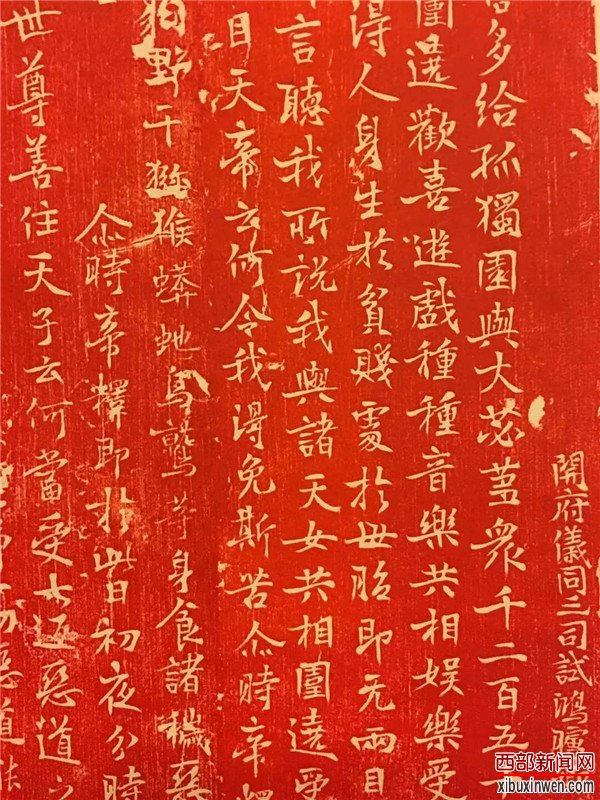 開府儀同三司試鴻臚
多給孤獨園與大苾蒭眾千二百五
圍遶歡喜遊戲種種音樂共相娛樂受
得人身生於貧賤處於母胎即无兩目
言聽我所說我與諸天女共相圍遶受
目天帝云何令我得免斯苦尒時帝
狗野干獼猴蟒虵烏鷲等身食諸穢惡
尒時帝釋即於此日初夜分時
世尊善住天子云何當受七返惡道之
惡道
西部新闻网
xibuxinwen.com